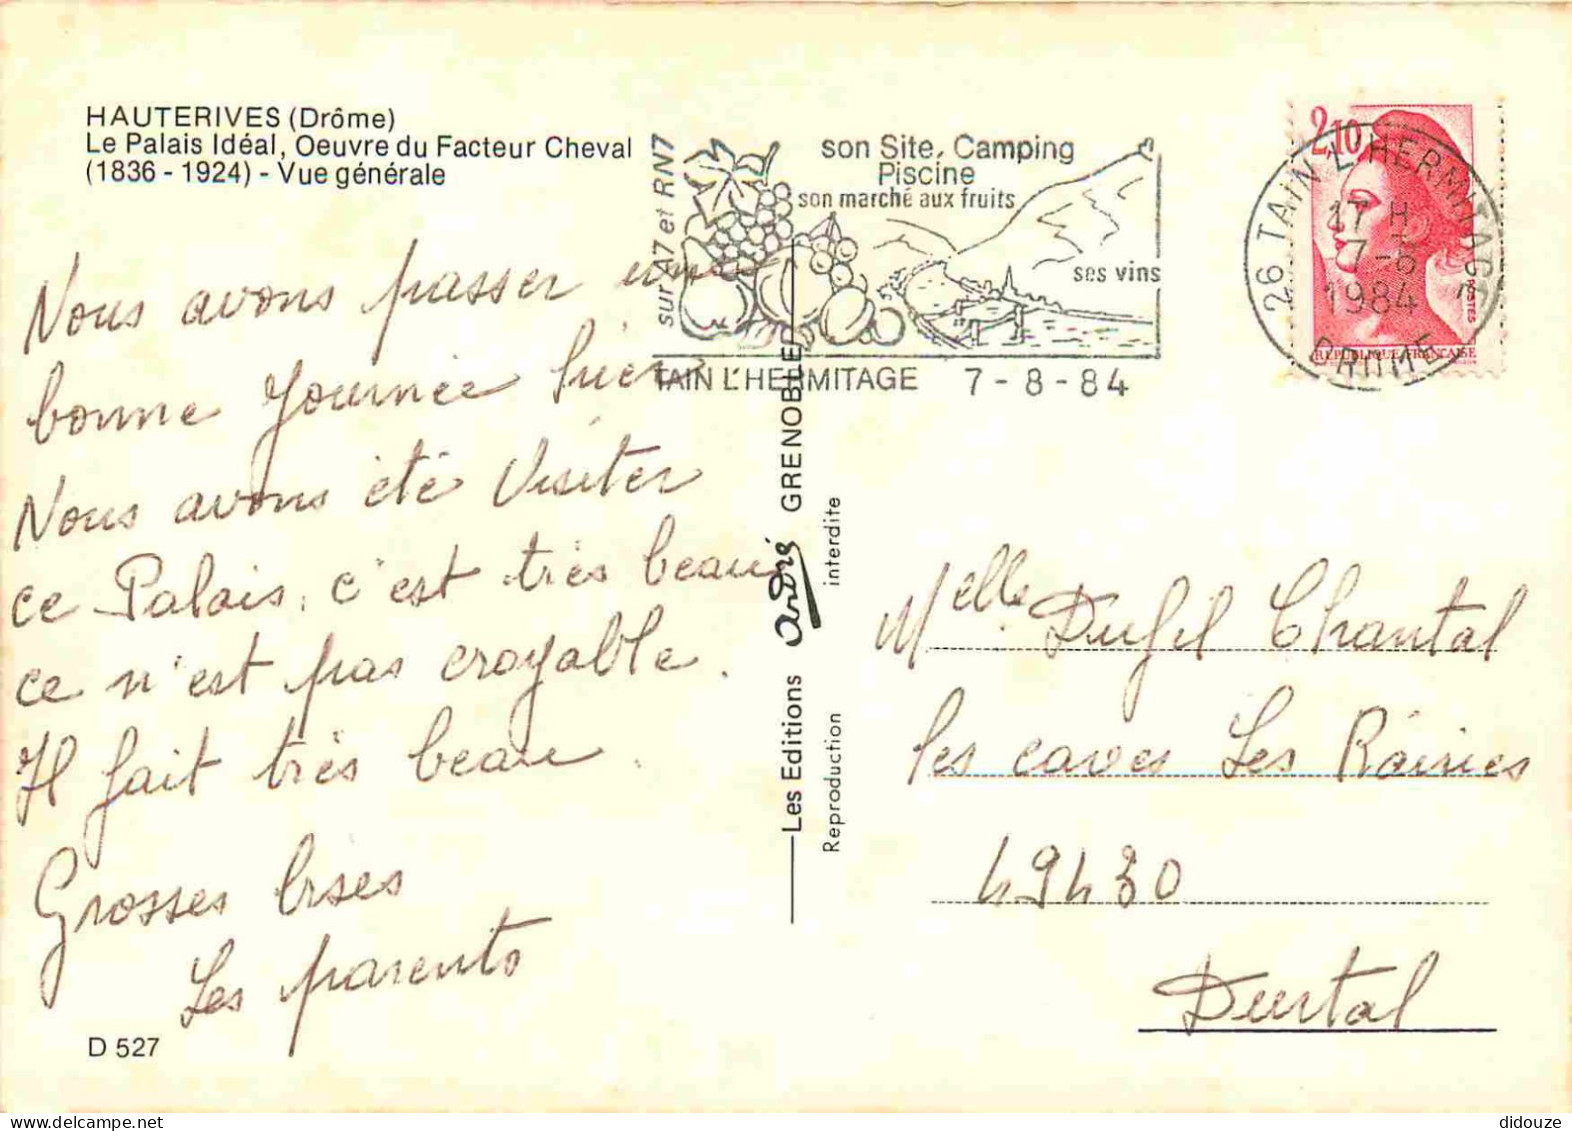 HAUTERIVES (Drôme)
Le Palais Idéal, Oeuvre du Facteur Cheval
(1836 - 1924) - Vue générale
Nous avons passer une
bonne journée hier
Nous avons été visiter
ce Palais, c'est très beau
ce n'est pas croyable.
Il fait très beau.
Grosses bises
Les parents
D 527
sur A7 et RN7
son Site, Camping
Piscine
son marché aux fruits
ses vins
TAIN L'HERMITAGE 7-8-84
2,10
POSTES
REPUBLIQUE FRANCAISE
26 TAIN L'HERMITAGE
17 H
7-8
1984
DROME
Les Editions André GRENOBLE
Reproduction interdite
Melle Chantal
les caves Les
49430
Durtal
didouze